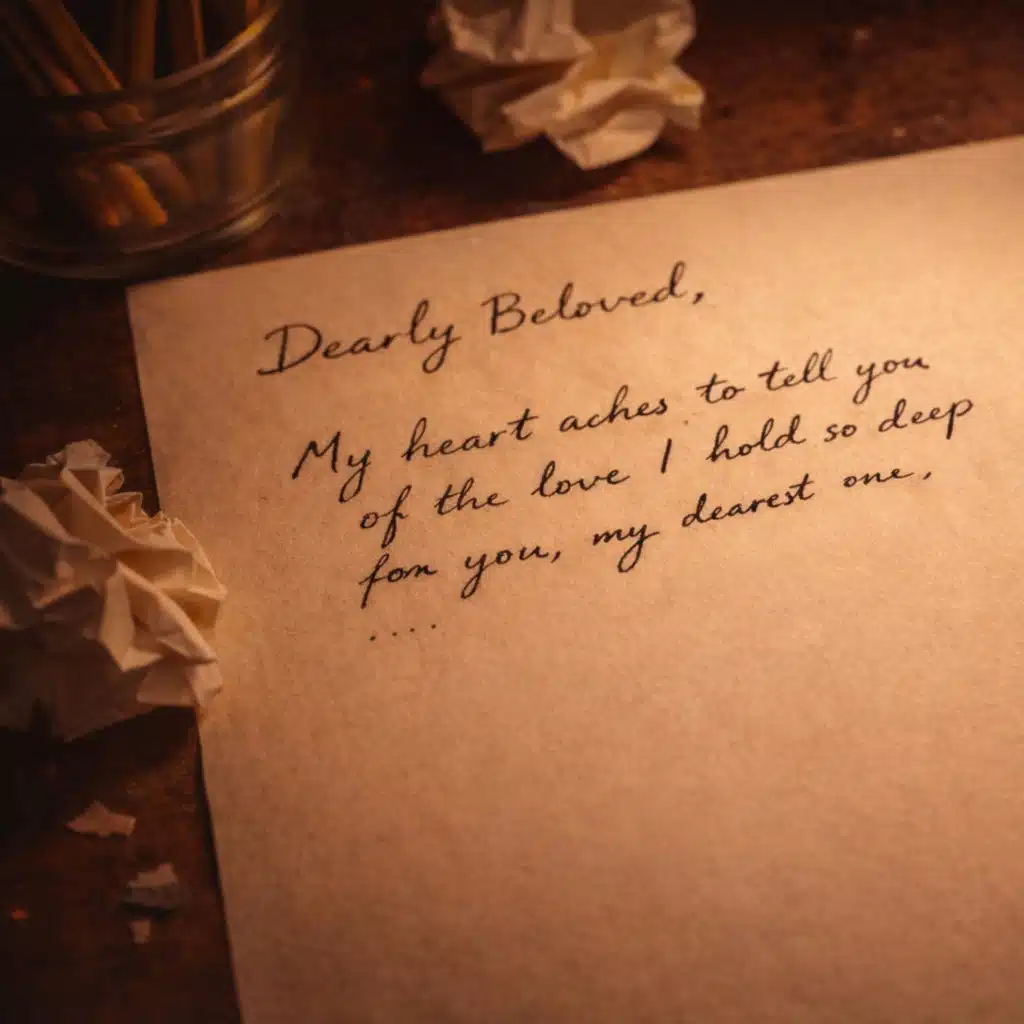 Dearly Beloved,
My heart aches to tell you
of the love I hold so deep
fom you, my dearest one,
....